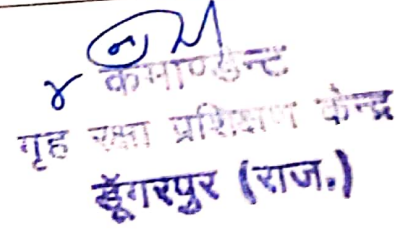 कमाण्डेन्ट
गृह रक्षा प्रशिक्षण केन्द्र
डूँगरपुर (राज.)